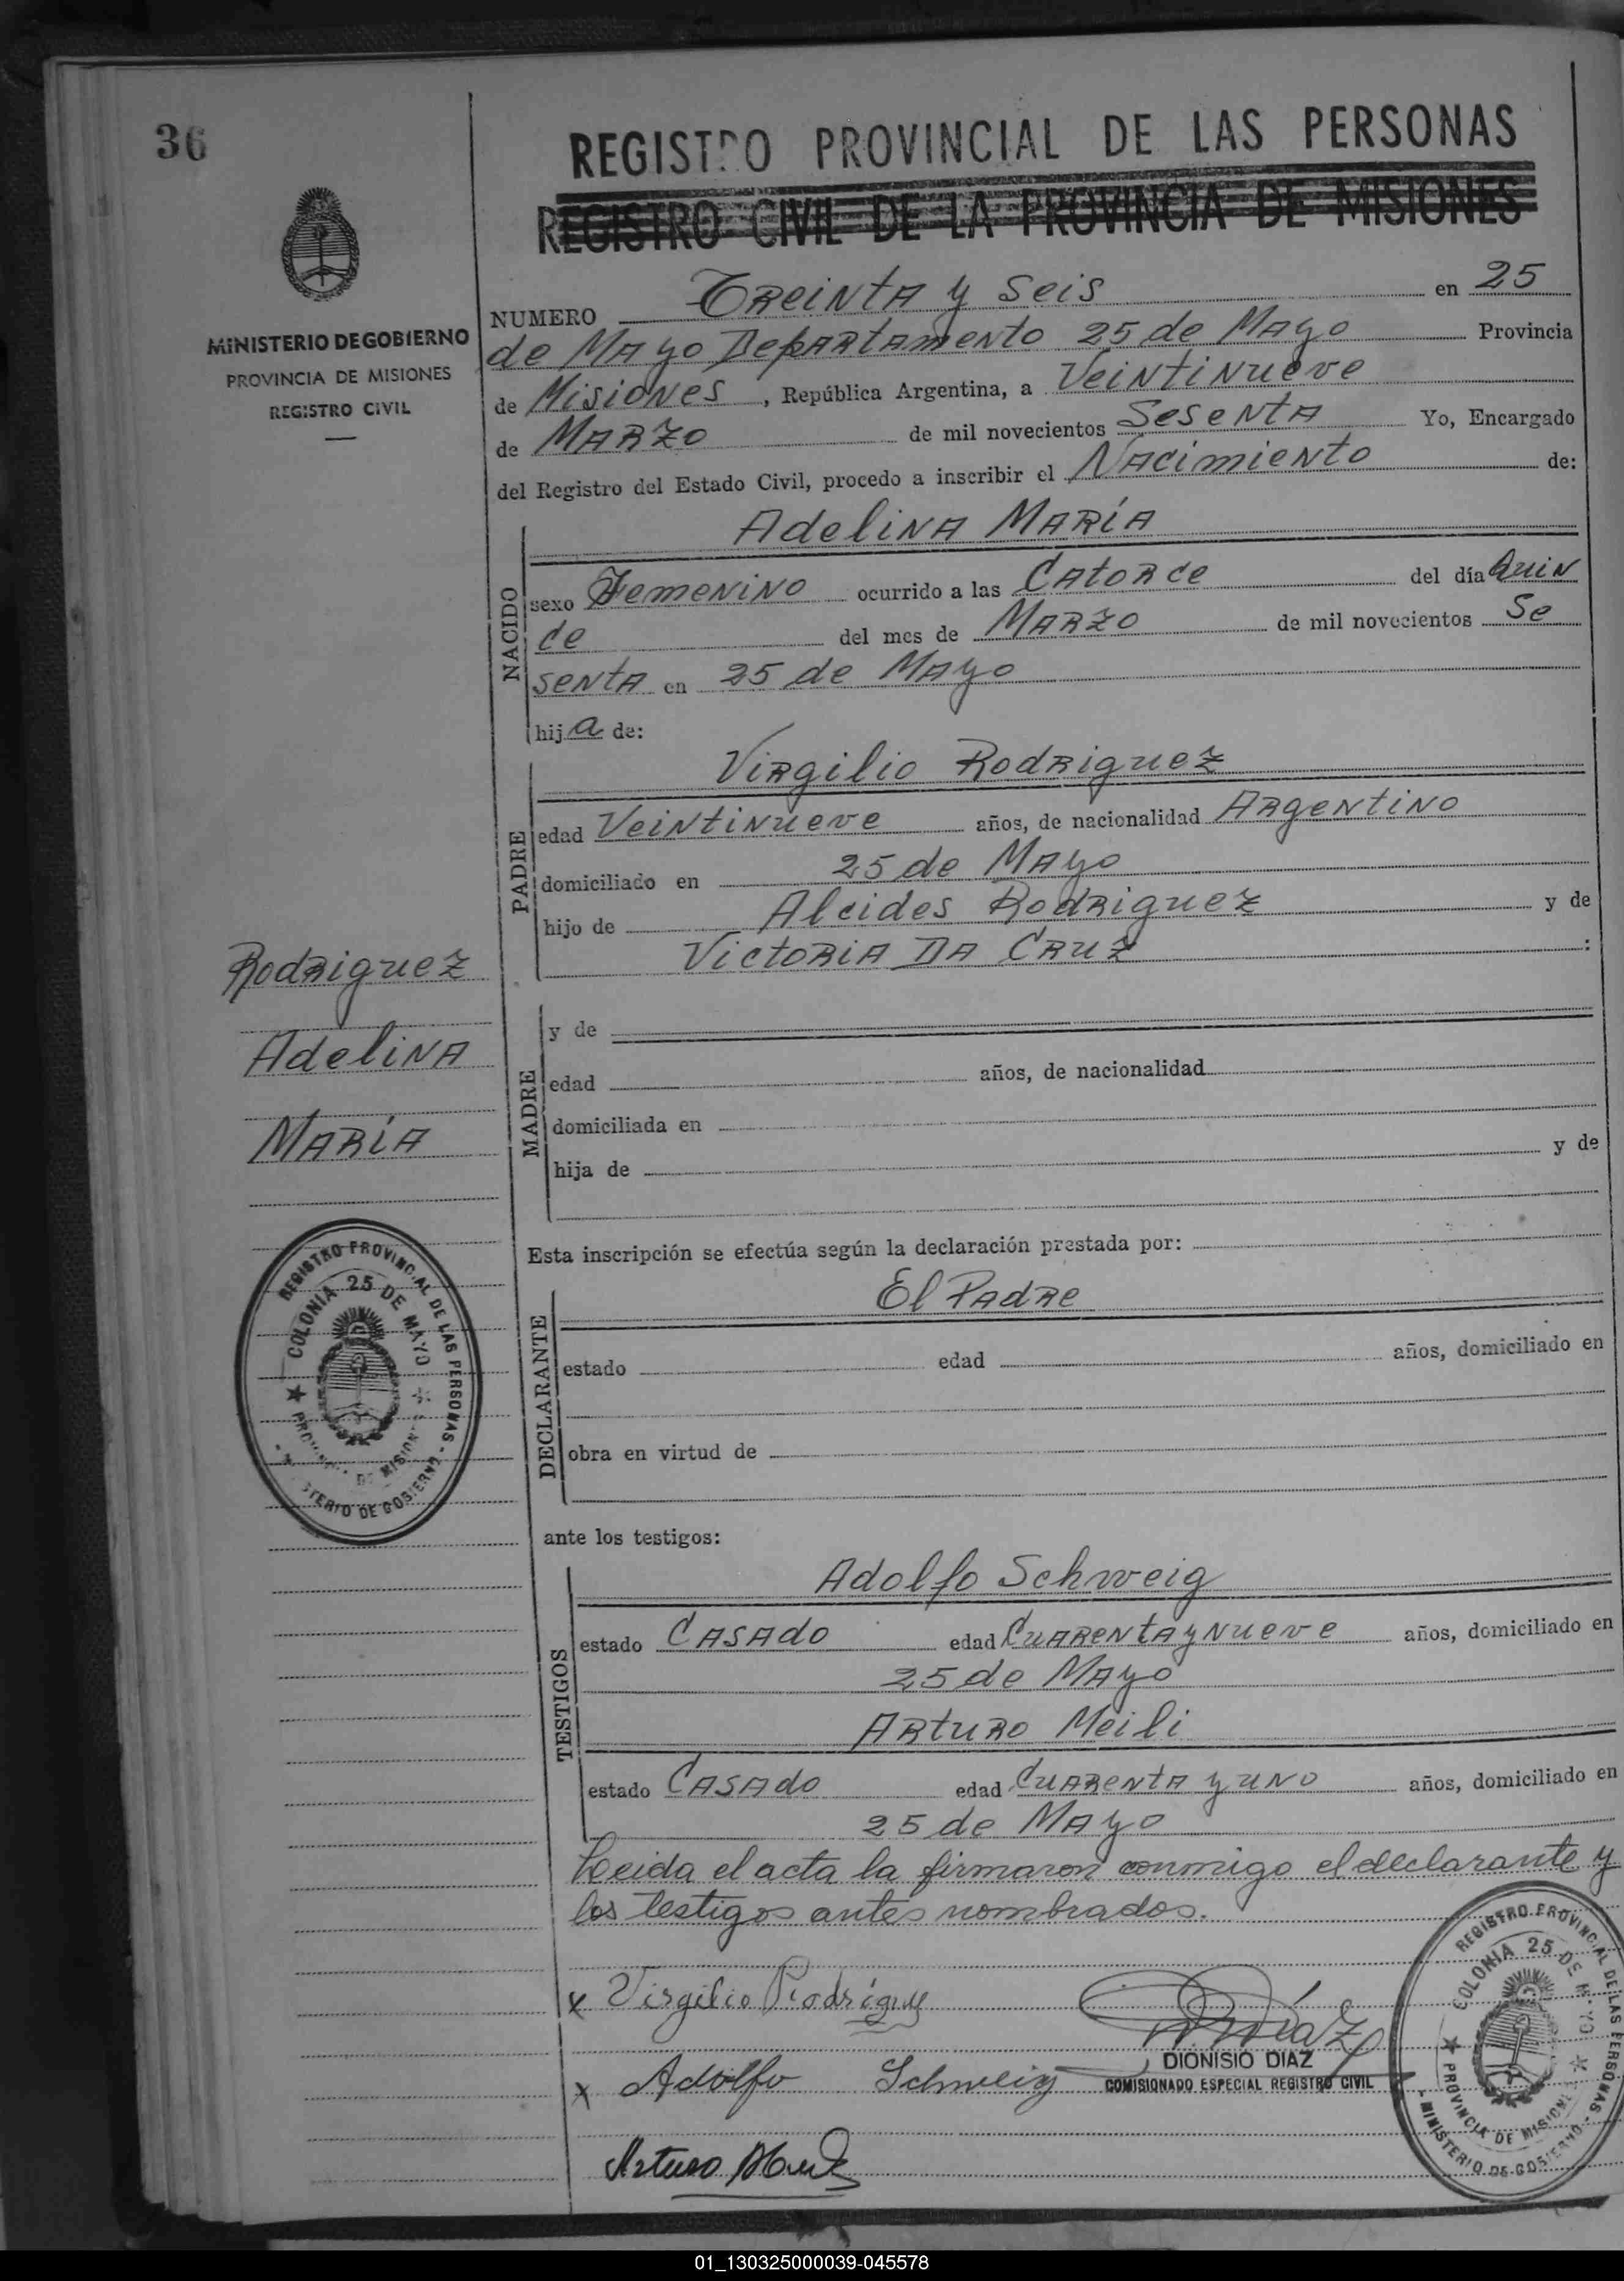 36
REGISTRO PROVINCIAL DE LAS PERSONAS
REGISTRO CIVIL DE LA PROVINCIA DE MISIONES
MINISTERIO DE GOBIERNO
PROVINCIA DE MISIONES
REGISTRO CIVIL
NUMERO Treinta y Seis en 25
de Mayo Departamento 25 de Mayo Provincia
de Misiones, República Argentina, a Veintinueve
de Marzo de mil novecientos Sesenta Yo, Encargado
del Registro del Estado Civil, procedo a inscribir el Nacimiento de:
NACIDO
Adelina María
sexo Femenino ocurrido a las Catorce del día Quin
ce del mes de Marzo de mil novecientos Se
senta en 25 de Mayo
hija de:
PADRE
Virgilio Rodriguez
edad Veintinueve años, de nacionalidad Argentino
domiciliado en 25 de Mayo
hijo de Alcides Rodriguez y de
Victoria Da Cruz :
Rodriguez
Adelina
María
MADRE
y de
edad años, de nacionalidad
domiciliada en
hija de y de
Esta inscripción se efectúa según la declaración prestada por:
DECLARANTE
El Padre
estado edad años, domiciliado en
obra en virtud de
REGISTRO PROVINCIAL DE LAS PERSONAS - MINISTERIO DE GOBIERNO
COLONIA 25 DE MAYO ★ PROVINCIA DE MISIONES ★
ante los testigos:
TESTIGOS
Adolfo Schweig
estado Casado edad Cuarenta y Nueve años, domiciliado en
25 de Mayo
Arturo Meili
estado Casado edad Cuarenta y uno años, domiciliado en
25 de Mayo
Leida el acta la firmaron conmigo el declarante y
los testigos antes nombrados.
x Virgilio Rodriguez
Diaz
DIONISIO DIAZ
COMISIONADO ESPECIAL REGISTRO CIVIL
x Adolfo Schweig
Arturo Meili
REGISTRO PROVINCIAL DE LAS PERSONAS - MINISTERIO DE GOBIERNO -
COLONIA 25 DE MAYO ★ PROVINCIA DE MISIONES ★
01_130325000039-045578